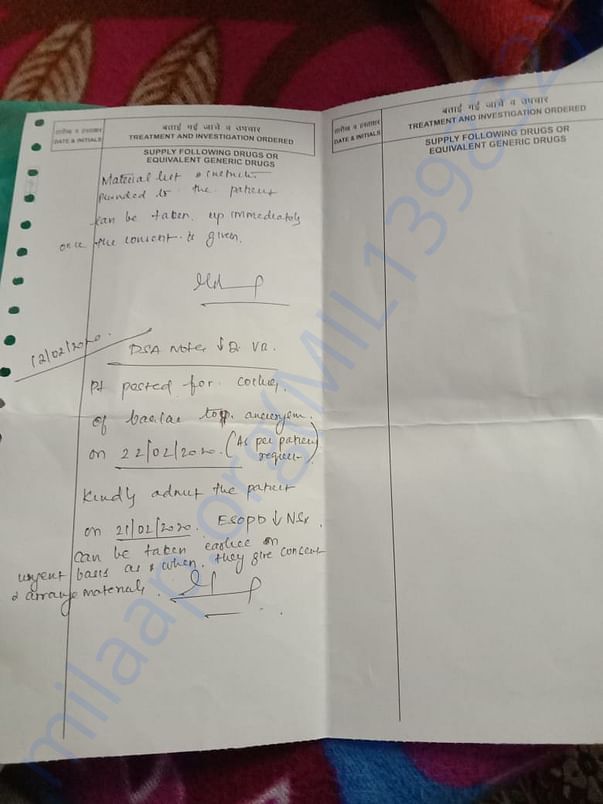 तारीख व हस्ताक्षर
DATE & INITIALS
बताई गई जाचे व उपचार
TREATMENT AND INVESTIGATION ORDERED
SUPPLY FOLLOWING DRUGS OR
EQUIVALENT GENERIC DRUGS
Material list
the patient
can be taken up immediately
once the consent is given.
12/02/2020
DSA Notes ↓
Pt posted for coiling
of basilar top aneurysm.
on 22/02/2020. (As per patient
request)
Kindly admit the patient
on 21/02/2020. ESOPD ↓ NSx.
can be taken earlier on
urgent basis as & when they give consent
& arrange materials.
तारीख व हस्ताक्षर
DATE & INITIALS
बताई गई जाचे व उपचार
TREATMENT AND INVESTIGATION ORDERED
SUPPLY FOLLOWING DRUGS OR
EQUIVALENT GENERIC DRUGS